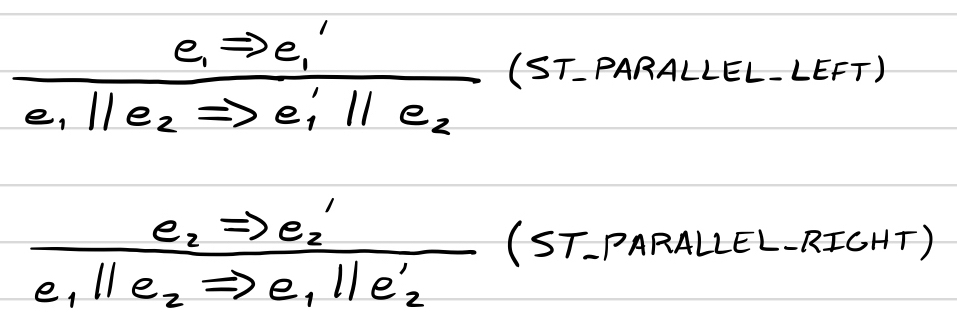 e₁ ⇒ e₁′
e₁ || e₂ ⇒ e₁′ || e₂ (ST_PARALLEL_LEFT)
e₂ ⇒ e₂′
e₁ || e₂ ⇒ e₁ || e₂′ (ST_PARALLEL_RIGHT)